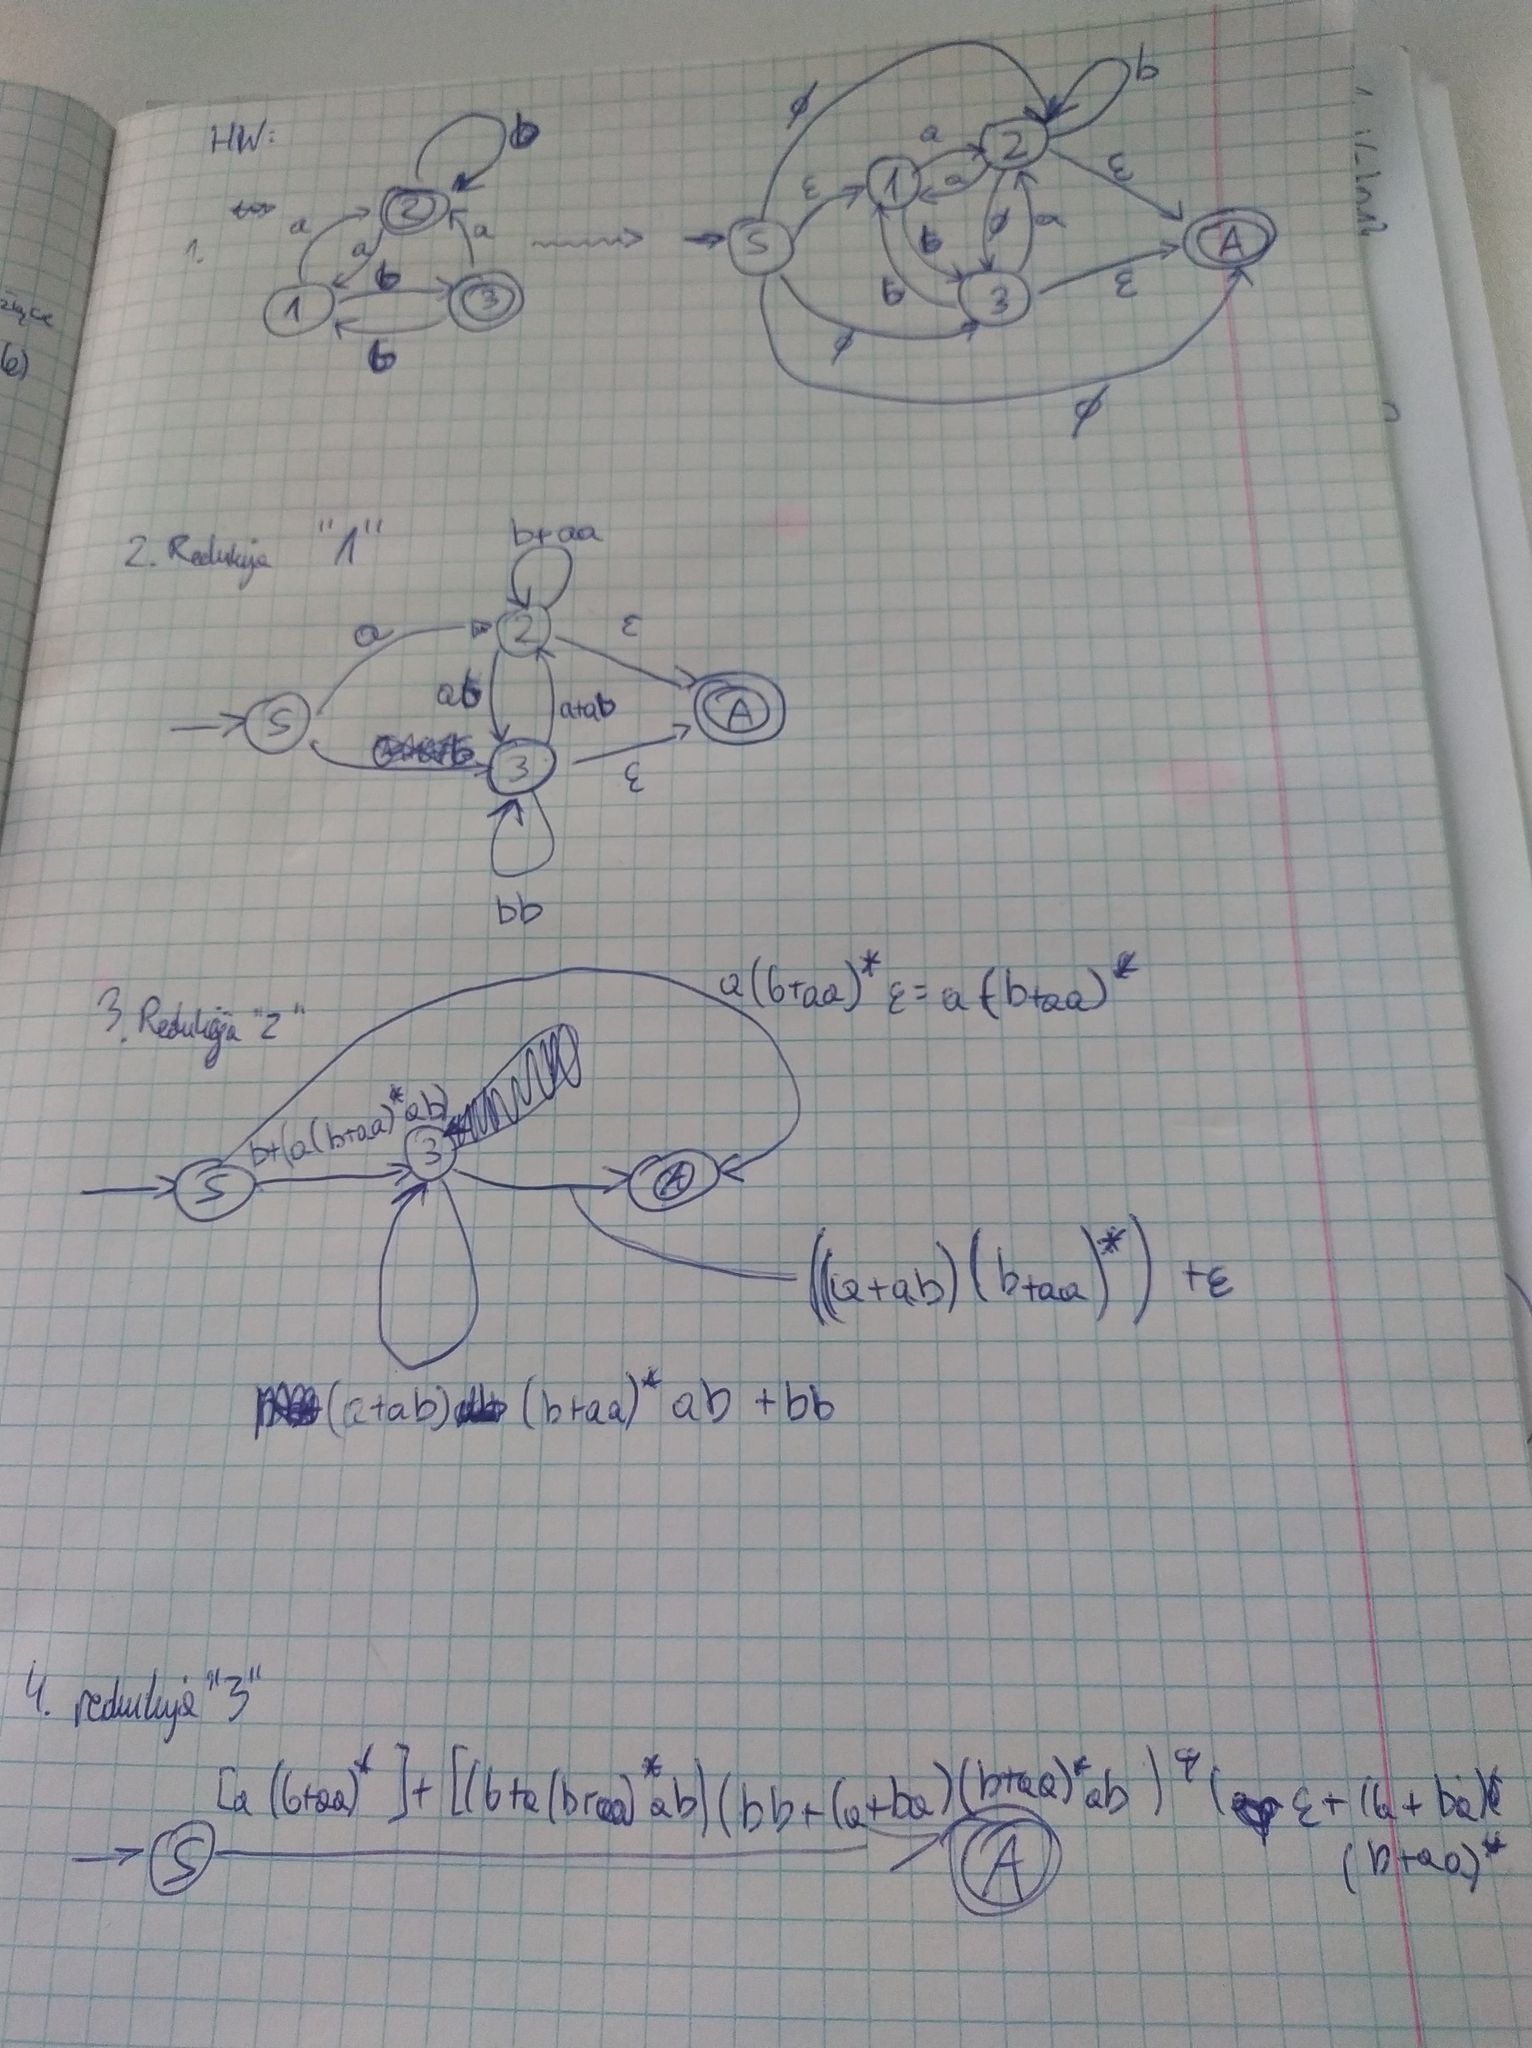 HW:
1.
b
2
a
a
a
b
1
3
b
ϕ
b
a
2
ε
1
a
ε
S
b
ϕ
a
A
b
3
ε
ϕ
ϕ
2. Redukcja "1"
b+aa
a
2
ε
ab
a+ab
S
A
3
ε
bb
3. Redukcja "2"
a(b+aa)* ε = a(b+aa)*
b+(a(b+aa)*ab)
3
S
A
((a+ab)(b+aa)*) +ε
(a+ab) (b+aa)* ab + bb
4. redukcja "3"
[a (b+aa)*] + [(b+a(b+aa)*ab)(bb+(a+ba)(b+aa)*ab)* (ε+(a+ba)
(b+aa)*
S
A